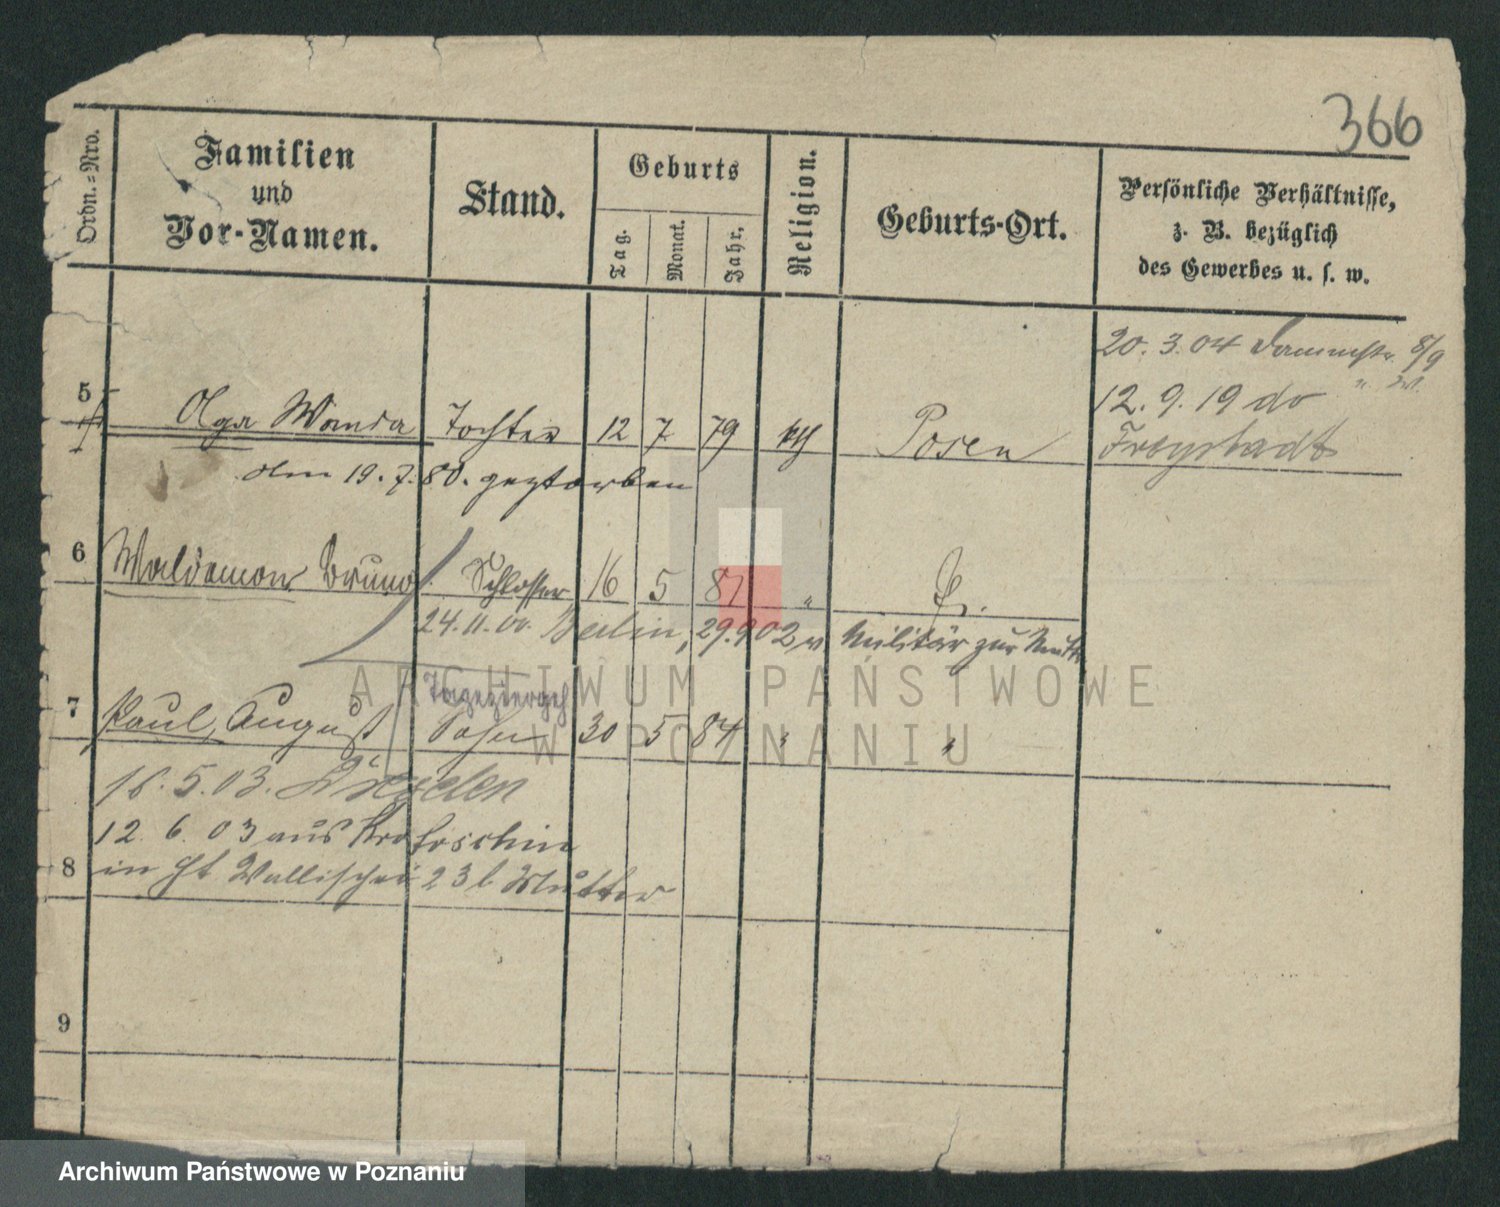 366
Ordn.=Nro.
Familien
und
Vor-Namen.
Stand.
Geburts
Tag.
Monat.
Jahr.
Religion.
Geburts-Ort.
Persönliche Verhältnisse,
z. B. bezüglich
des Gewerbes u. s. w.
20. 3. 04 Dammstr. 8/9
12. 9. 19 do
Freystadt
5 Olga Wanda Tochter 12 7 79 kth Posen
Am 19. 7. 80. gestorben
6 Waldemar Bruno Schlosser 16 5 81 " P.
24. 11. 00. Berlin, 29. 9 02 v Militär zur Mutter
7 Paul, August Sohn 30 5 84 " "
16. 5. 03. Dresden
12. 6. 03 aus Krotoschin
8 in St Wallischei 23 b Mutter
9
ARCHIWUM PAŃSTWOWE
W POZNANIU
Archiwum Państwowe w Poznaniu